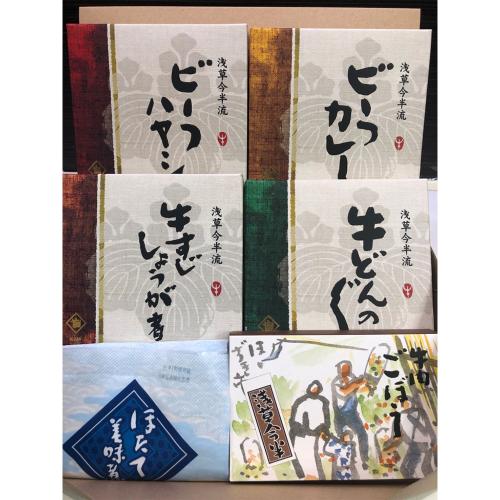 浅草今半流
ビーフ
ハヤシ
浅草今半流
ビーフ
カレー
浅草今半流
牛すじ
しょうが煮
浅草今半流
牛どんの
ぐ
ほたて
美味煮
牛肉
ごぼう
浅草今半